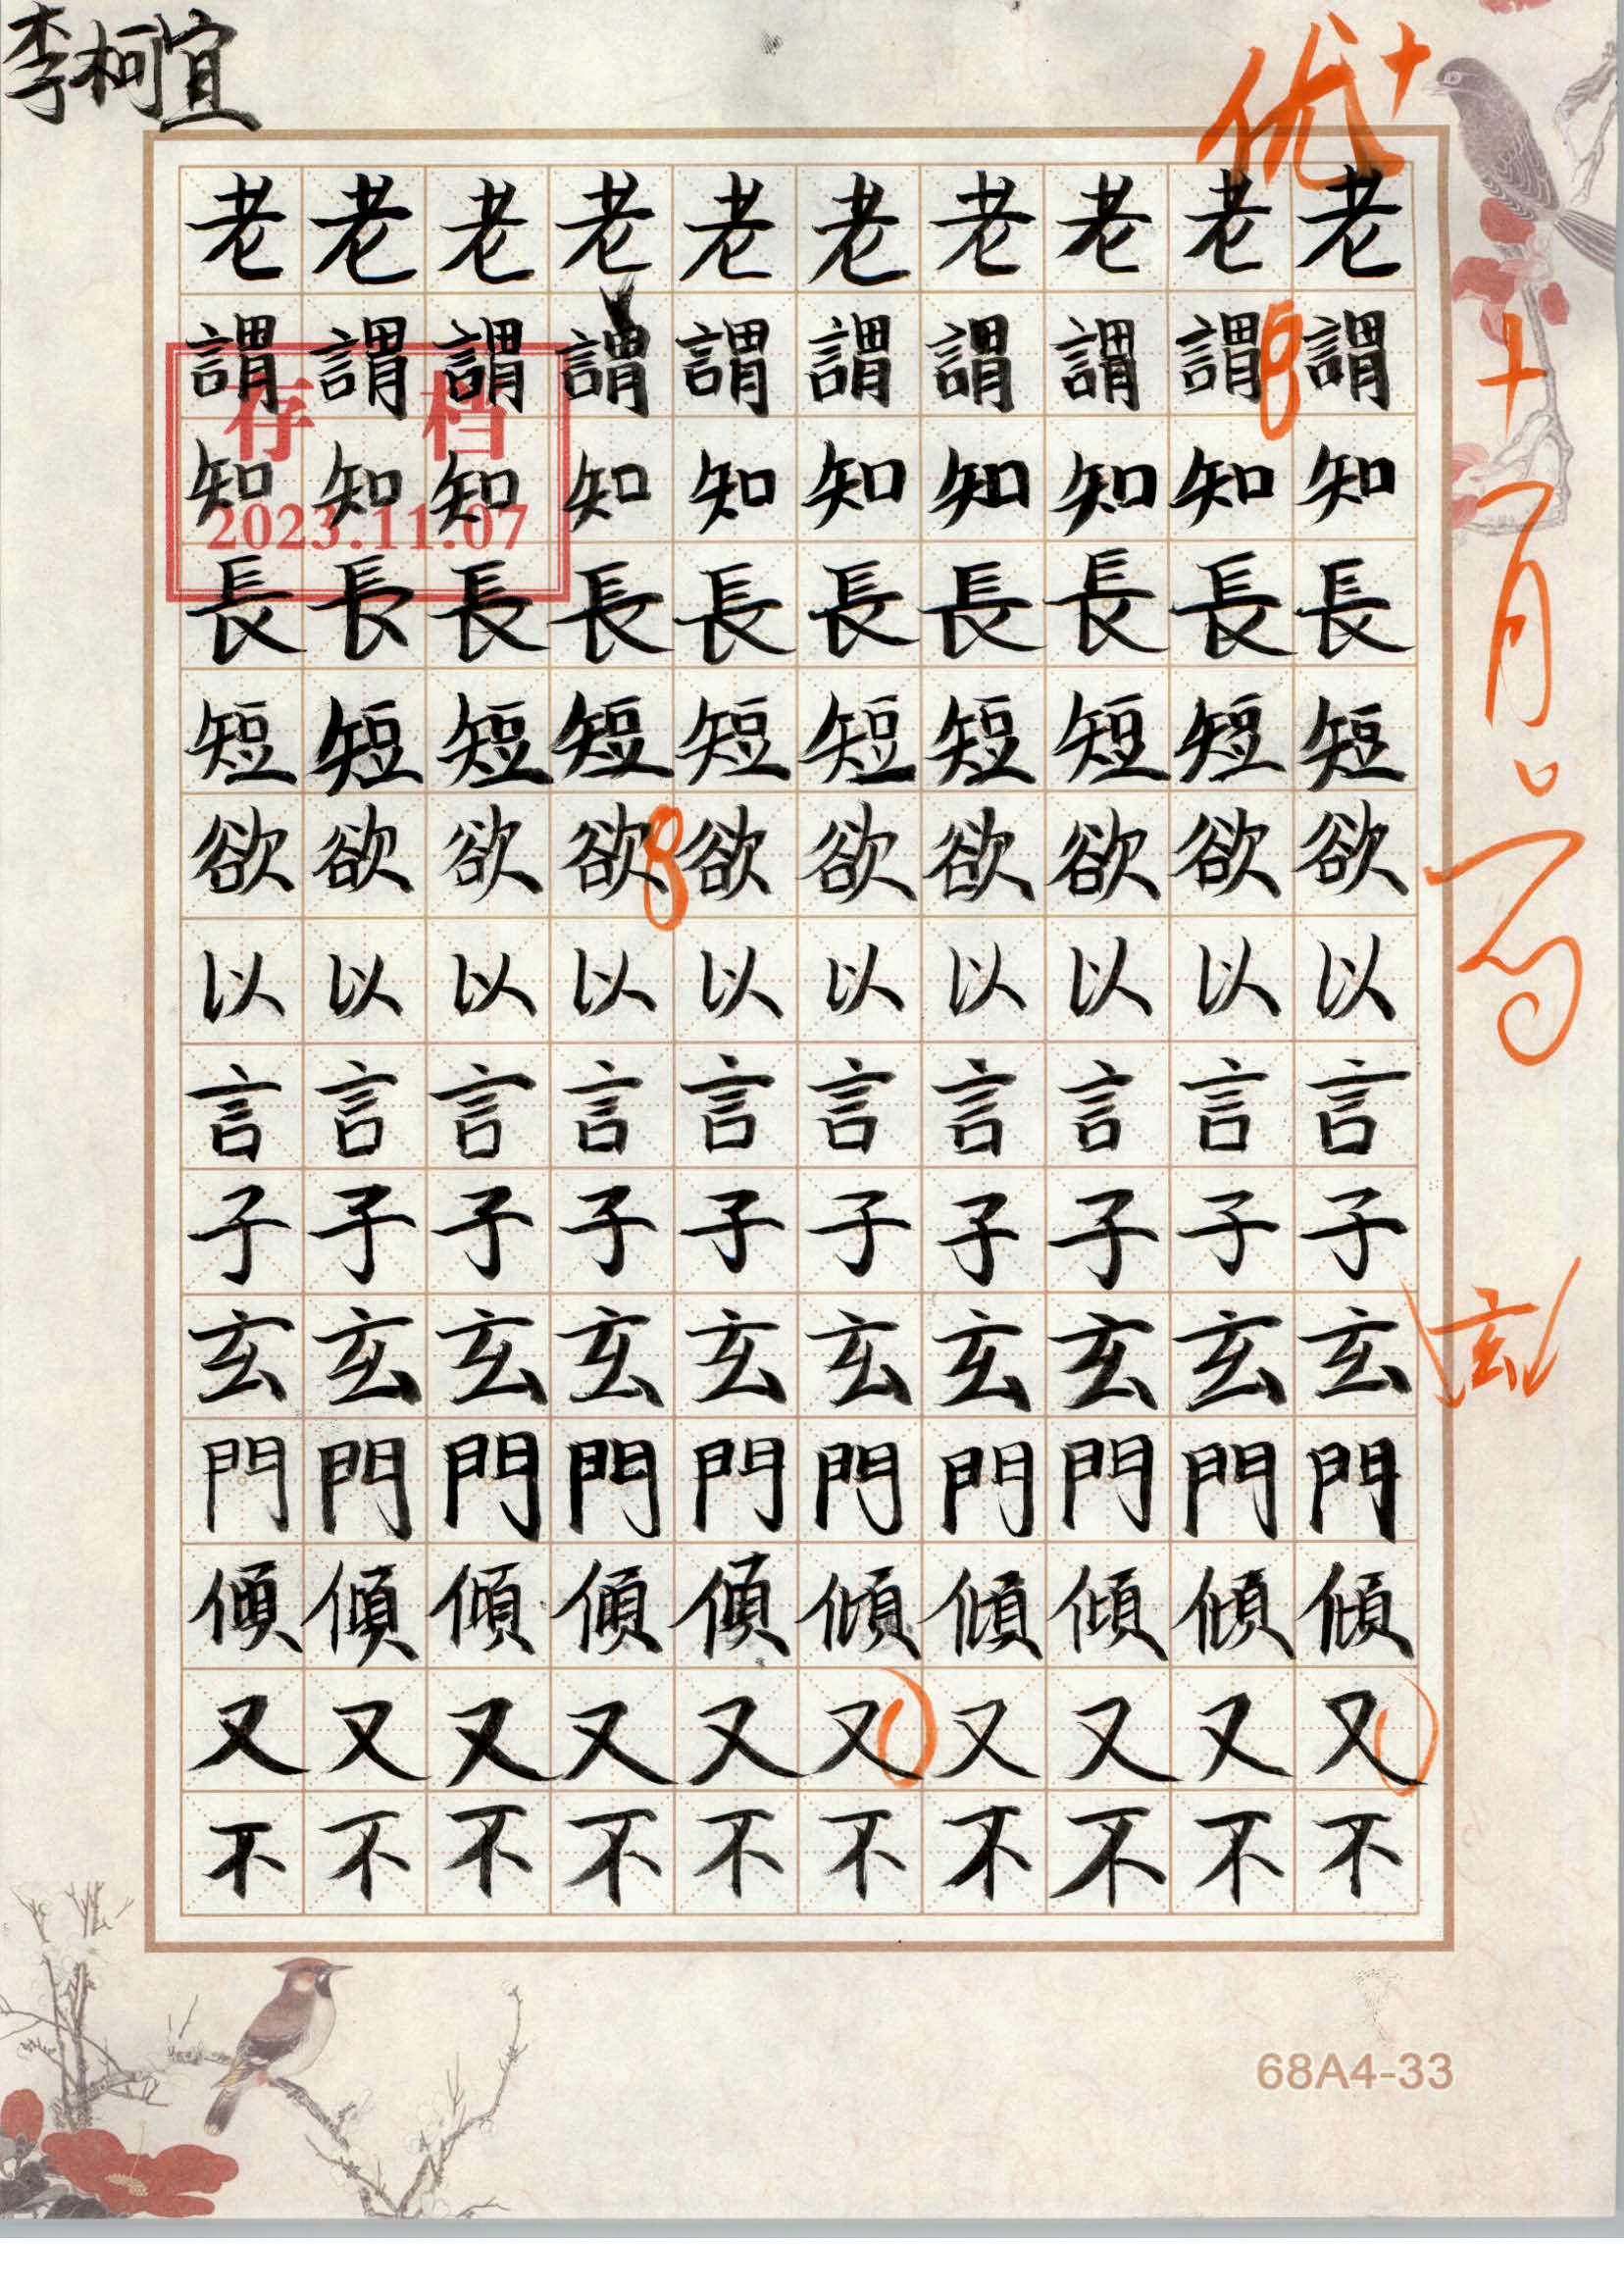 李柯宜
优+
老老老老老老老老老老
謂謂謂謂謂謂謂謂謂謂
存 档
知知知知知知知知知知
2023.11.07
長長長長長長長長長長
短短短短短短短短短短
欲欲欲欲欲欲欲欲欲欲
以以以以以以以以以以
言言言言言言言言言言
子子子子子子子子子子
玄玄玄玄玄玄玄玄玄玄
玄
門門門門門門門門門門
傾傾傾傾傾傾傾傾傾傾
又又又又又又又又又又
不不不不不不不不不不
十月
68A4-33